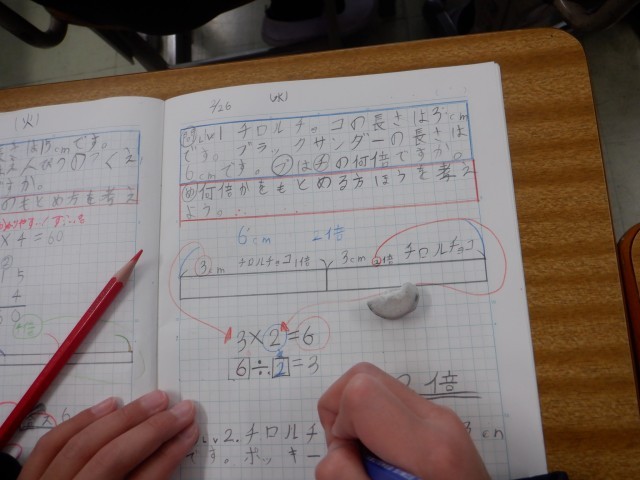 (火)
さは15cmです。
すか。
のもとめ方を考え
×4=60
15
4
60
4/26 (水)
問Lv1 チロルチョコの長さは3cm
です。ブラックサンダーの長さは
6cmです。ブはチの何倍ですか。
め何倍かをもとめる方ほうを考え
よう。
6cm 2倍
3cm チロルチョコ1倍 3cm 2倍 チロルチョコ
3×2=6
6÷2=3
2倍
Lv2.チロルチ 3cm
です。ポッキー